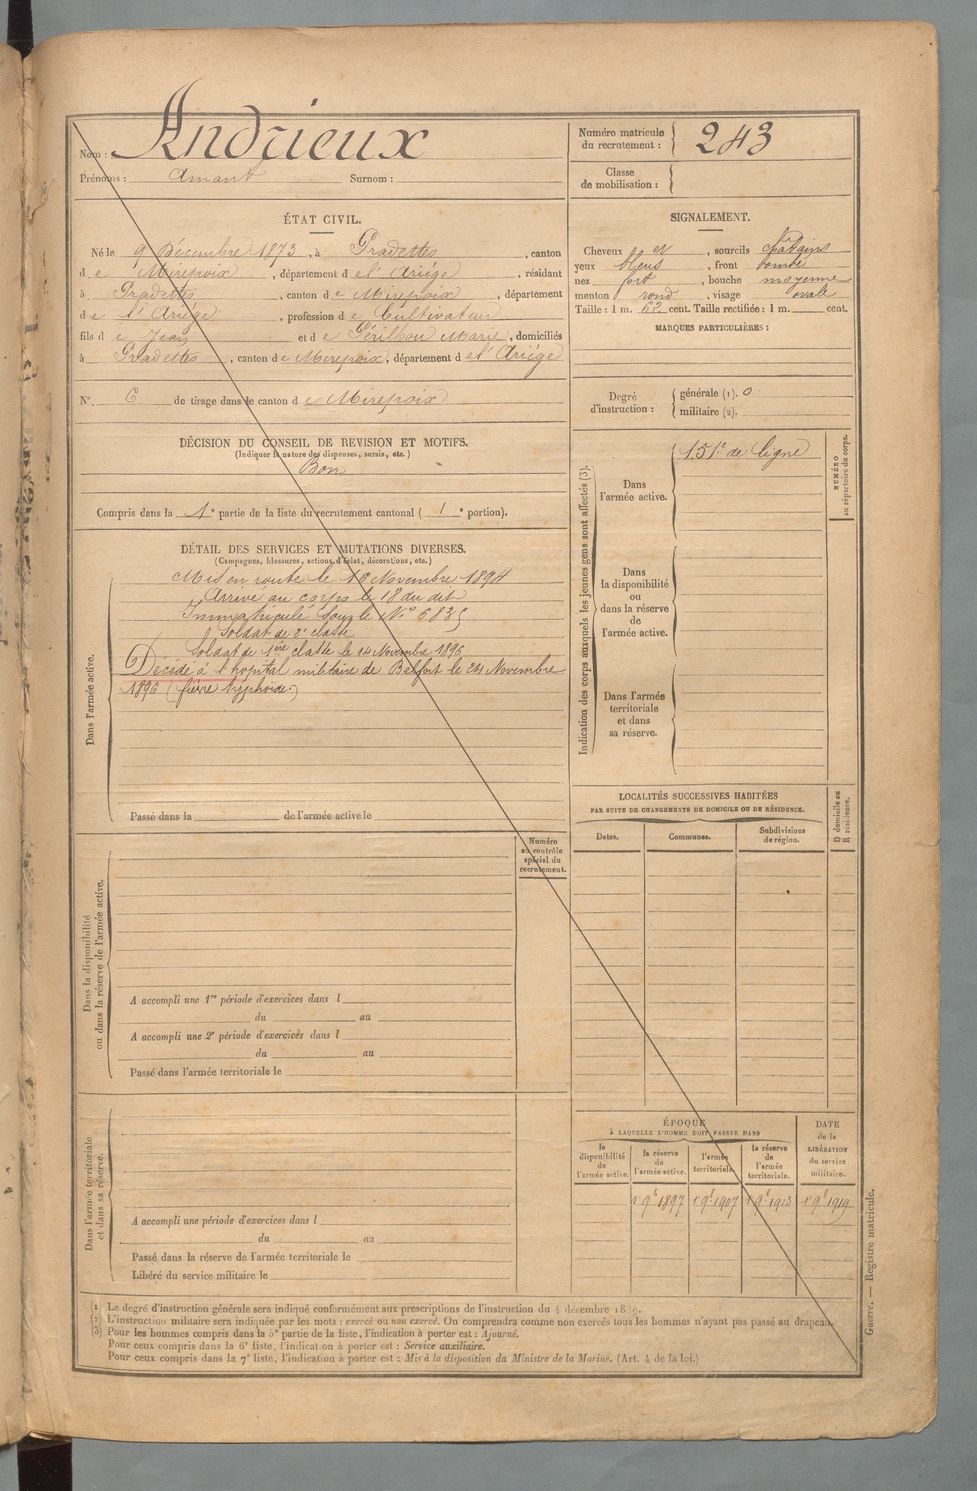 Nom : Andrieux
Prénoms : Amant Surnom :
Numéro matricule
du recrutement : 243
Classe
de mobilisation :
ÉTAT CIVIL.
Né le 9 Décembre 1873, à Pradettes, canton
de Mirepoix, département de l'Ariége, résidant
à Pradettes, canton de Mirepoix, département
de l'Ariége, profession de Cultivateur
fils de Jean et de Périlhou Marie, domiciliés
à Pradettes, canton de Mirepoix, département de l'Ariége
N°. 6 de tirage dans le canton de Mirepoix
DÉCISION DU CONSEIL DE REVISION ET MOTIFS.
(Indiquer la nature des dispenses, sursis, etc.)
Bon
Compris dans la 1e partie de la liste du recrutement cantonal ( 1e portion).
SIGNALEMENT.
Cheveux et, sourcils châtains
yeux bleus, front bombé
nez fort, bouche moyenne
menton rond, visage ovale
Taille : 1 m. 62 cent. Taille rectifiée : 1 m. cent.
MARQUES PARTICULIÈRES :
Degré
d'instruction :
générale (1). 0
militaire (2).
DÉTAIL DES SERVICES ET MUTATIONS DIVERSES.
(Campagnes, blessures, actions d'éclat, décorations, etc.)
Dans l'armée active.
Mis en route le 16 Novembre 1894
Arrivé au corps le 18 du dit
Immatriculé sous le N° 6835
Soldat de 2e classe
Soldat de 1ère classe le 14 Novembre 1895
Décédé à l'hopital militaire de Belfort le 24 Novembre
1896 (fièvre typhoïde.)
Passé dans la de l'armée active le
Indication des corps auxquels les jeunes gens sont affectés (3).
Dans
l'armée active.
151e de ligne
NUMÉRO
au répertoire du corps.
Dans
la disponibilité
ou
dans la réserve
de
l'armée active.
Dans l'armée
territoriale
et dans
sa réserve.
LOCALITÉS SUCCESSIVES HABITÉES
PAR SUITE DE CHANGEMENTS DE DOMICILE OU DE RÉSIDENCE.
Dates. Communes. Subdivisions
de région.
D domicile ou
R résidence.
Dans la disponibilité
ou dans la réserve de l'armée active.
Numéro
au contrôle
spécial du
recrutement.
A accompli une 1re période d'exercices dans l
du au
A accompli une 2e période d'exercices dans l
du au
Passé dans l'armée territoriale le
Dans l'armée territoriale
et dans sa réserve.
A accompli une période d'exercices dans l
du au
Passé dans la réserve de l'armée territoriale le
Libéré du service militaire le
ÉPOQUE
À LAQUELLE L'HOMME DOIT PASSER DANS
la
disponibilité
de
l'armée active.
la réserve
de
l'armée active.
l'armée
territoriale.
la réserve
de
l'armée
territoriale.
DATE
de la
LIBÉRATION
du service
militaire.
1er 9bre 1897 1er 9bre 1907 1er 9bre 1913 1er 9bre 1919
(1) Le degré d'instruction générale sera indiqué conformément aux prescriptions de l'instruction du 4 décembre 1889.
(2) L'instruction militaire sera indiquée par les mots : exercé ou non exercé. On comprendra comme non exercés tous les hommes n'ayant pas passé au drapeau.
(3) Pour les hommes compris dans la 5e partie de la liste, l'indication à porter est : Ajourné.
Pour ceux compris dans la 6e liste, l'indication à porter est : Service auxiliaire.
Pour ceux compris dans la 7e liste, l'indication à porter est : Mis à la disposition du Ministre de la Marine. (Art. 4 de la loi.)
Guerre. — Registre matricule.